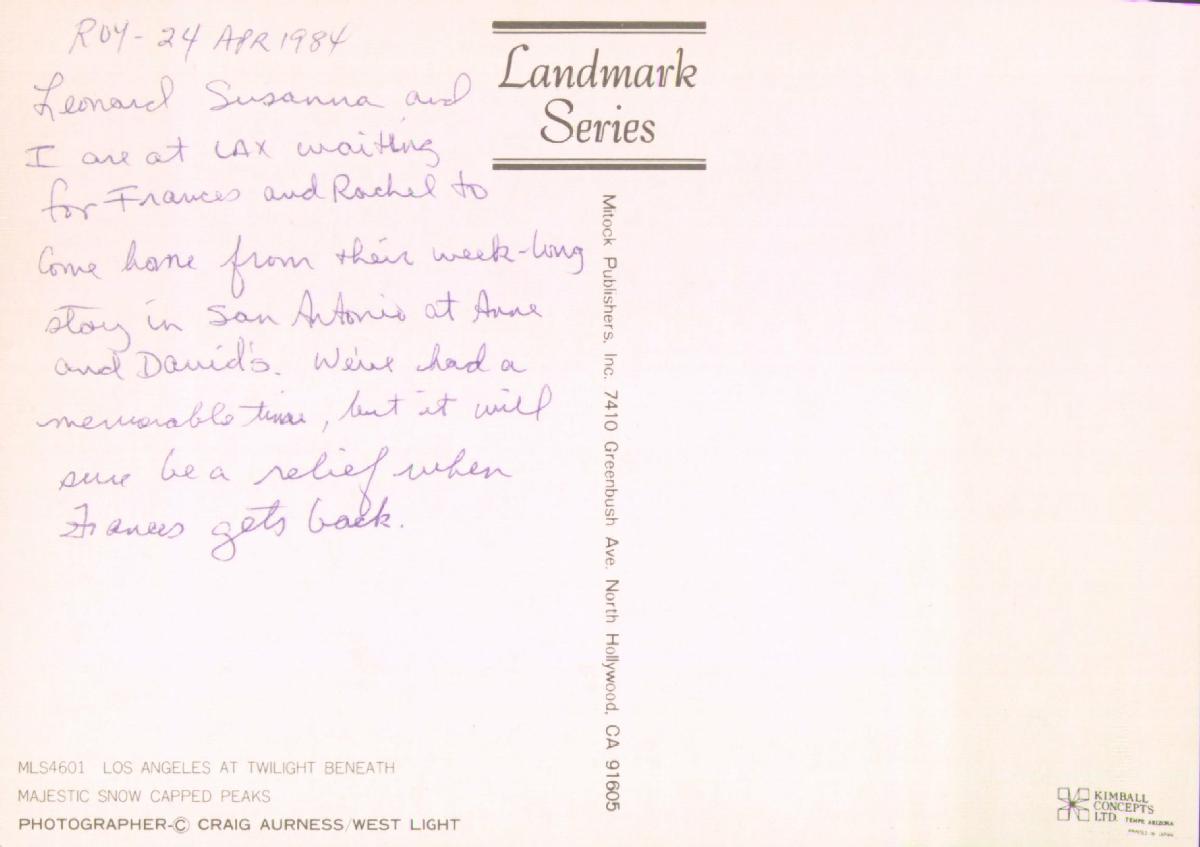 ROY - 24 APR 1984
Leonard Susanna and
I are at LAX waiting
for Frances and Rachel to
come home from their week-long
stay in San Antonio at Anne
and David's. We've had a
memorable time, but it will
sure be a relief when
Frances gets back.
Landmark
Series
Mitock Publishers, Inc. 7410 Greenbush Ave. North Hollywood, CA 91605
MLS4601 LOS ANGELES AT TWILIGHT BENEATH
MAJESTIC SNOW CAPPED PEAKS
PHOTOGRAPHER-© CRAIG AURNESS/WEST LIGHT
KIMBALL
CONCEPTS
LTD. TEMPE ARIZONA
PRINTED IN JAPAN